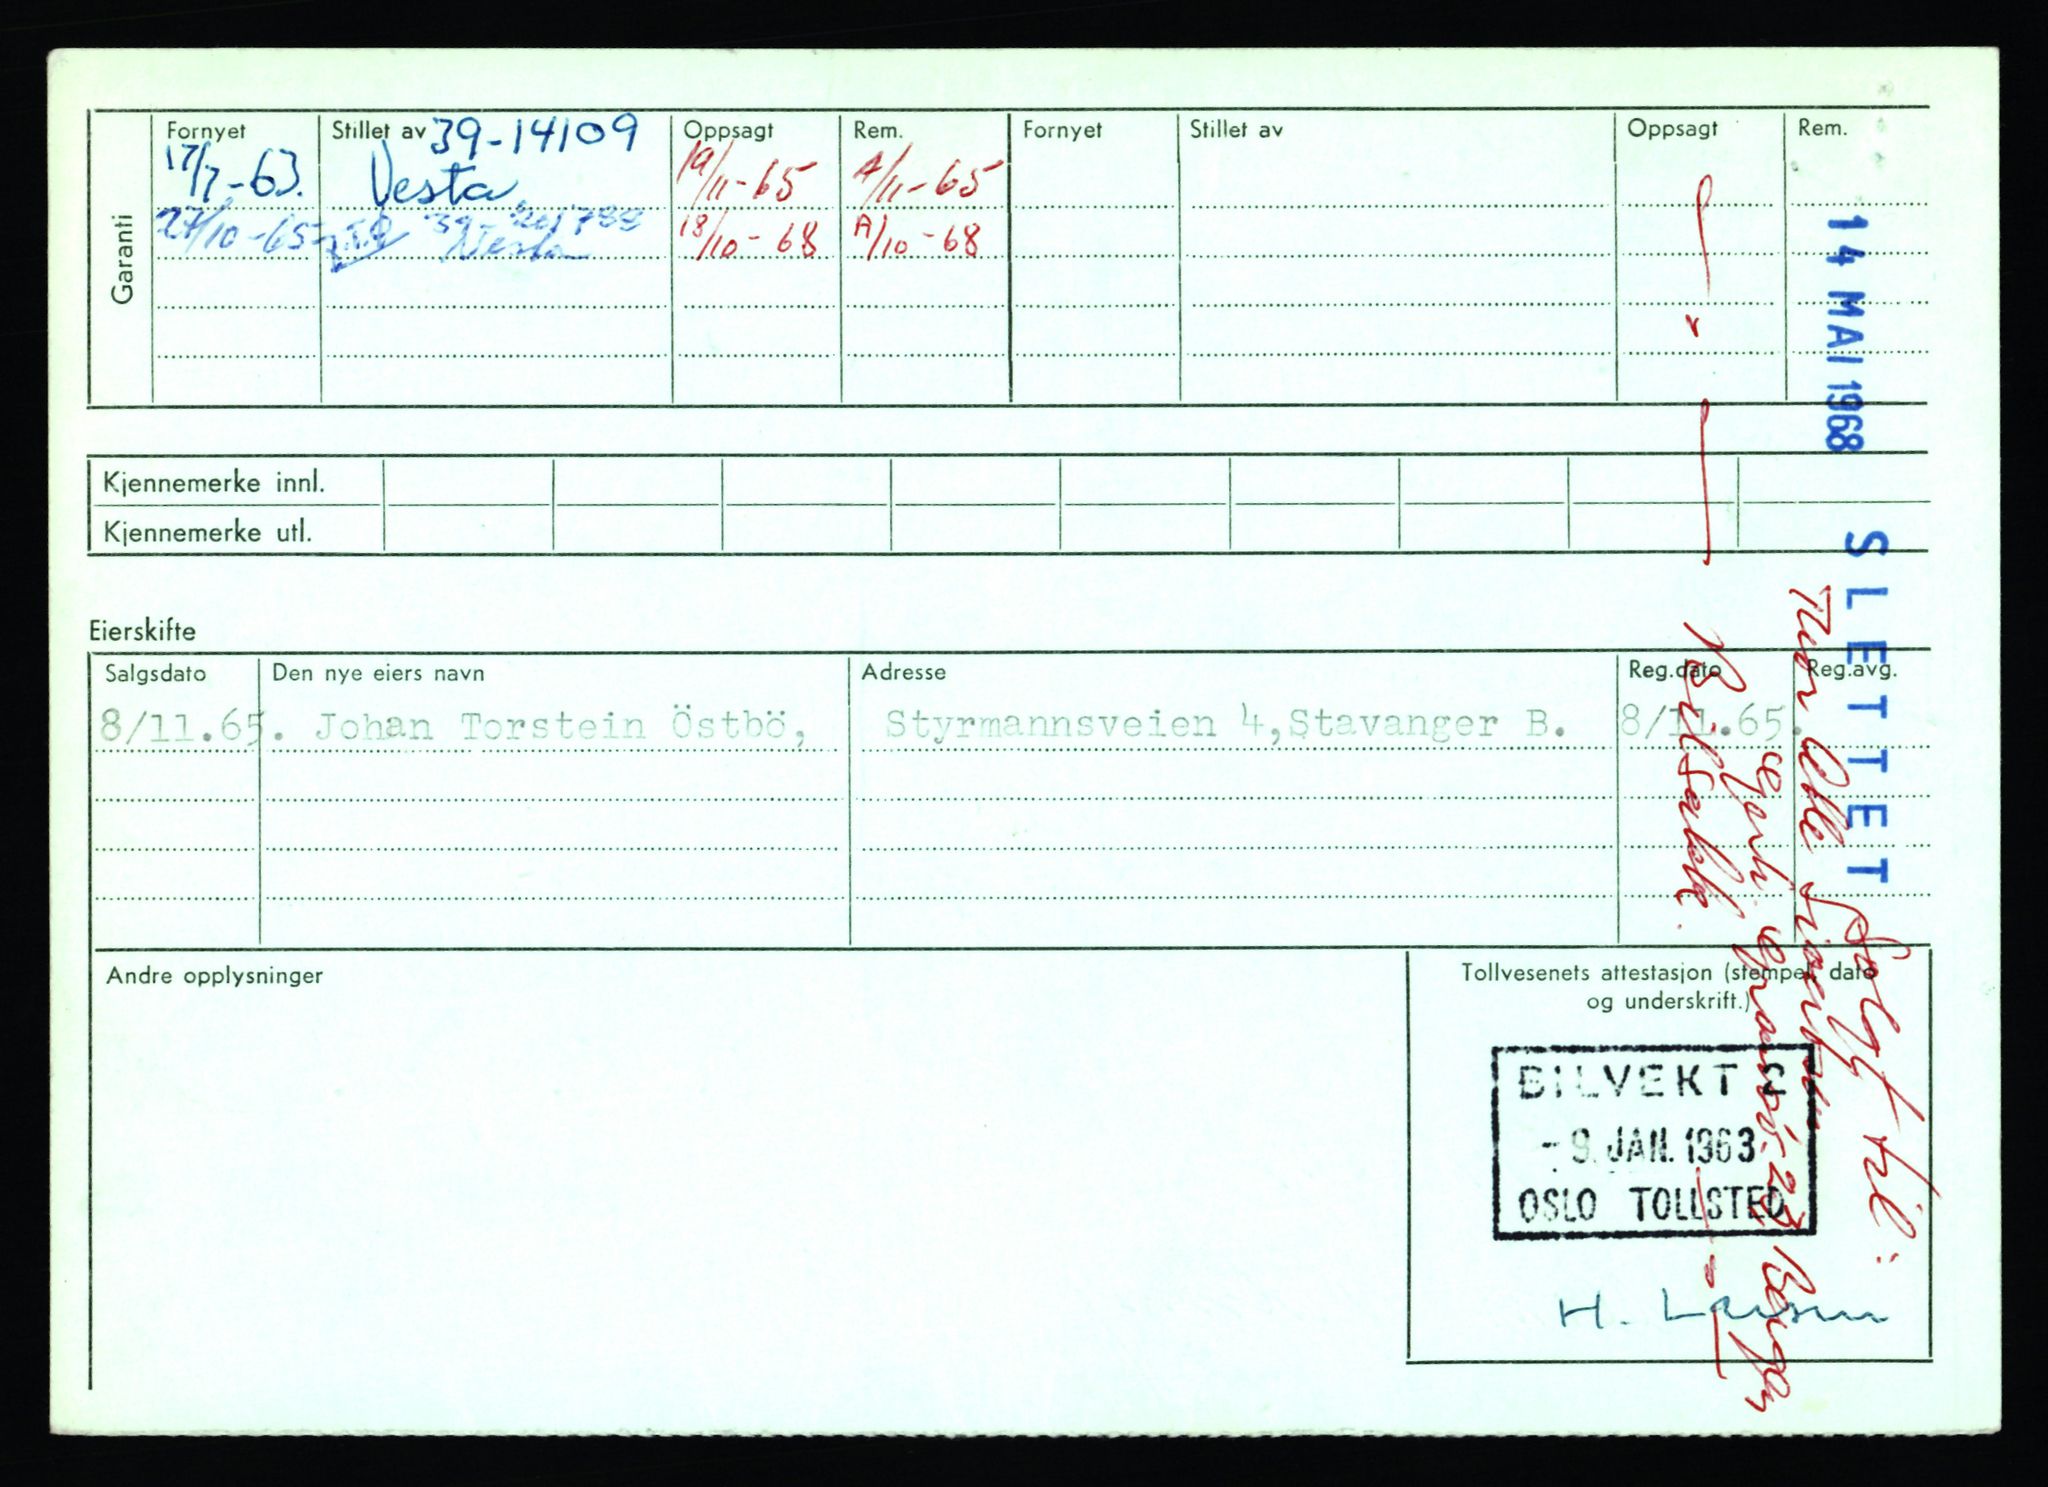 Garanti
Fornyet Stillet av 39-14109 Oppsagt Rem. Fornyet Stillet av Oppsagt Rem.
17/7-63. Vesta 19/11-65 A/11-65
27/10-65 Vesta 18/10-68 A/10-68
Kjennemerke innl.
Kjennemerke utl.
Eierskifte
Salgsdato Den nye eiers navn Adresse Reg.dato Reg.avg.
8/11.65. Johan Torstein Östbö, Styrmannsveien 4,Stavanger B. 8/11.65.
Andre opplysninger
Tollvesenets attestasjon (stempel dato
og underskrift.)
BILVEKT S
- 9. JAN. 1963
OSLO TOLLSTED
H. Larsen
14 MAI 1968 SLETTET
Solgt til:
Bilsakk.